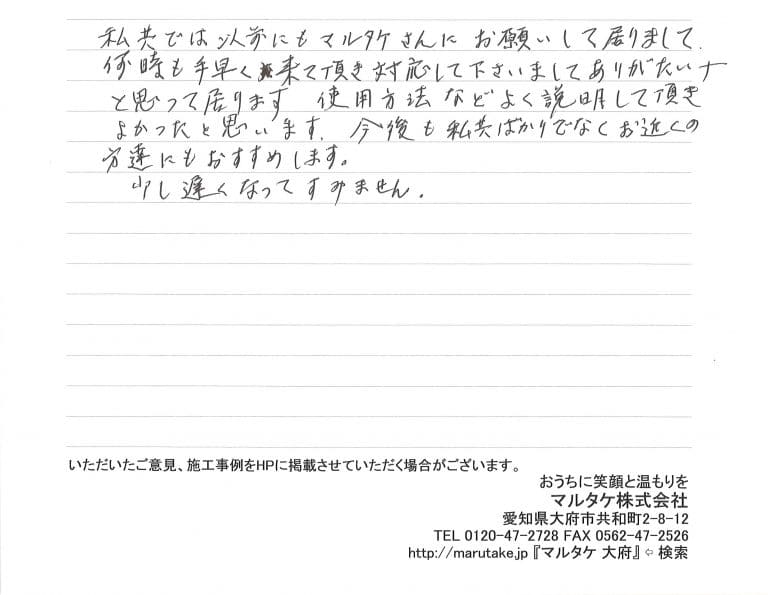 私共では以前にもマルタケさんにお願いして居りまして、
何時も手早く来て頂き対応して下さいましてありがたいナ
と思って居ります 使用方法などよく説明して頂き
よかったと思います。今後も私共ばかりでなくお近くの
方達にもおすすめします。
少し遅くなってすみません。
いただいたご意見、施工事例をHPに掲載させていただく場合がございます。
おうちに笑顔と温もりを
マルタケ株式会社
愛知県大府市共和町2-8-12
TEL 0120-47-2728 FAX 0562-47-2526
http://marutake.jp『マルタケ 大府』⇦ 検索